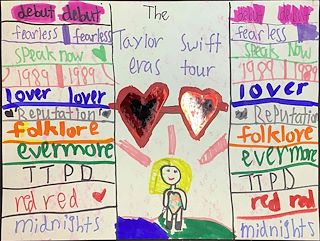 debut debut
fearless fearless
speak now
1989 1989
lover lover
Reputation
folklore
evermore
TTPD
red red
midnights
The
Taylor Swift
eras tour
debut debut
fearless
speak Now
1989 1989
lover
Reputation
folklore
evermore
TTPD
red red
midnights